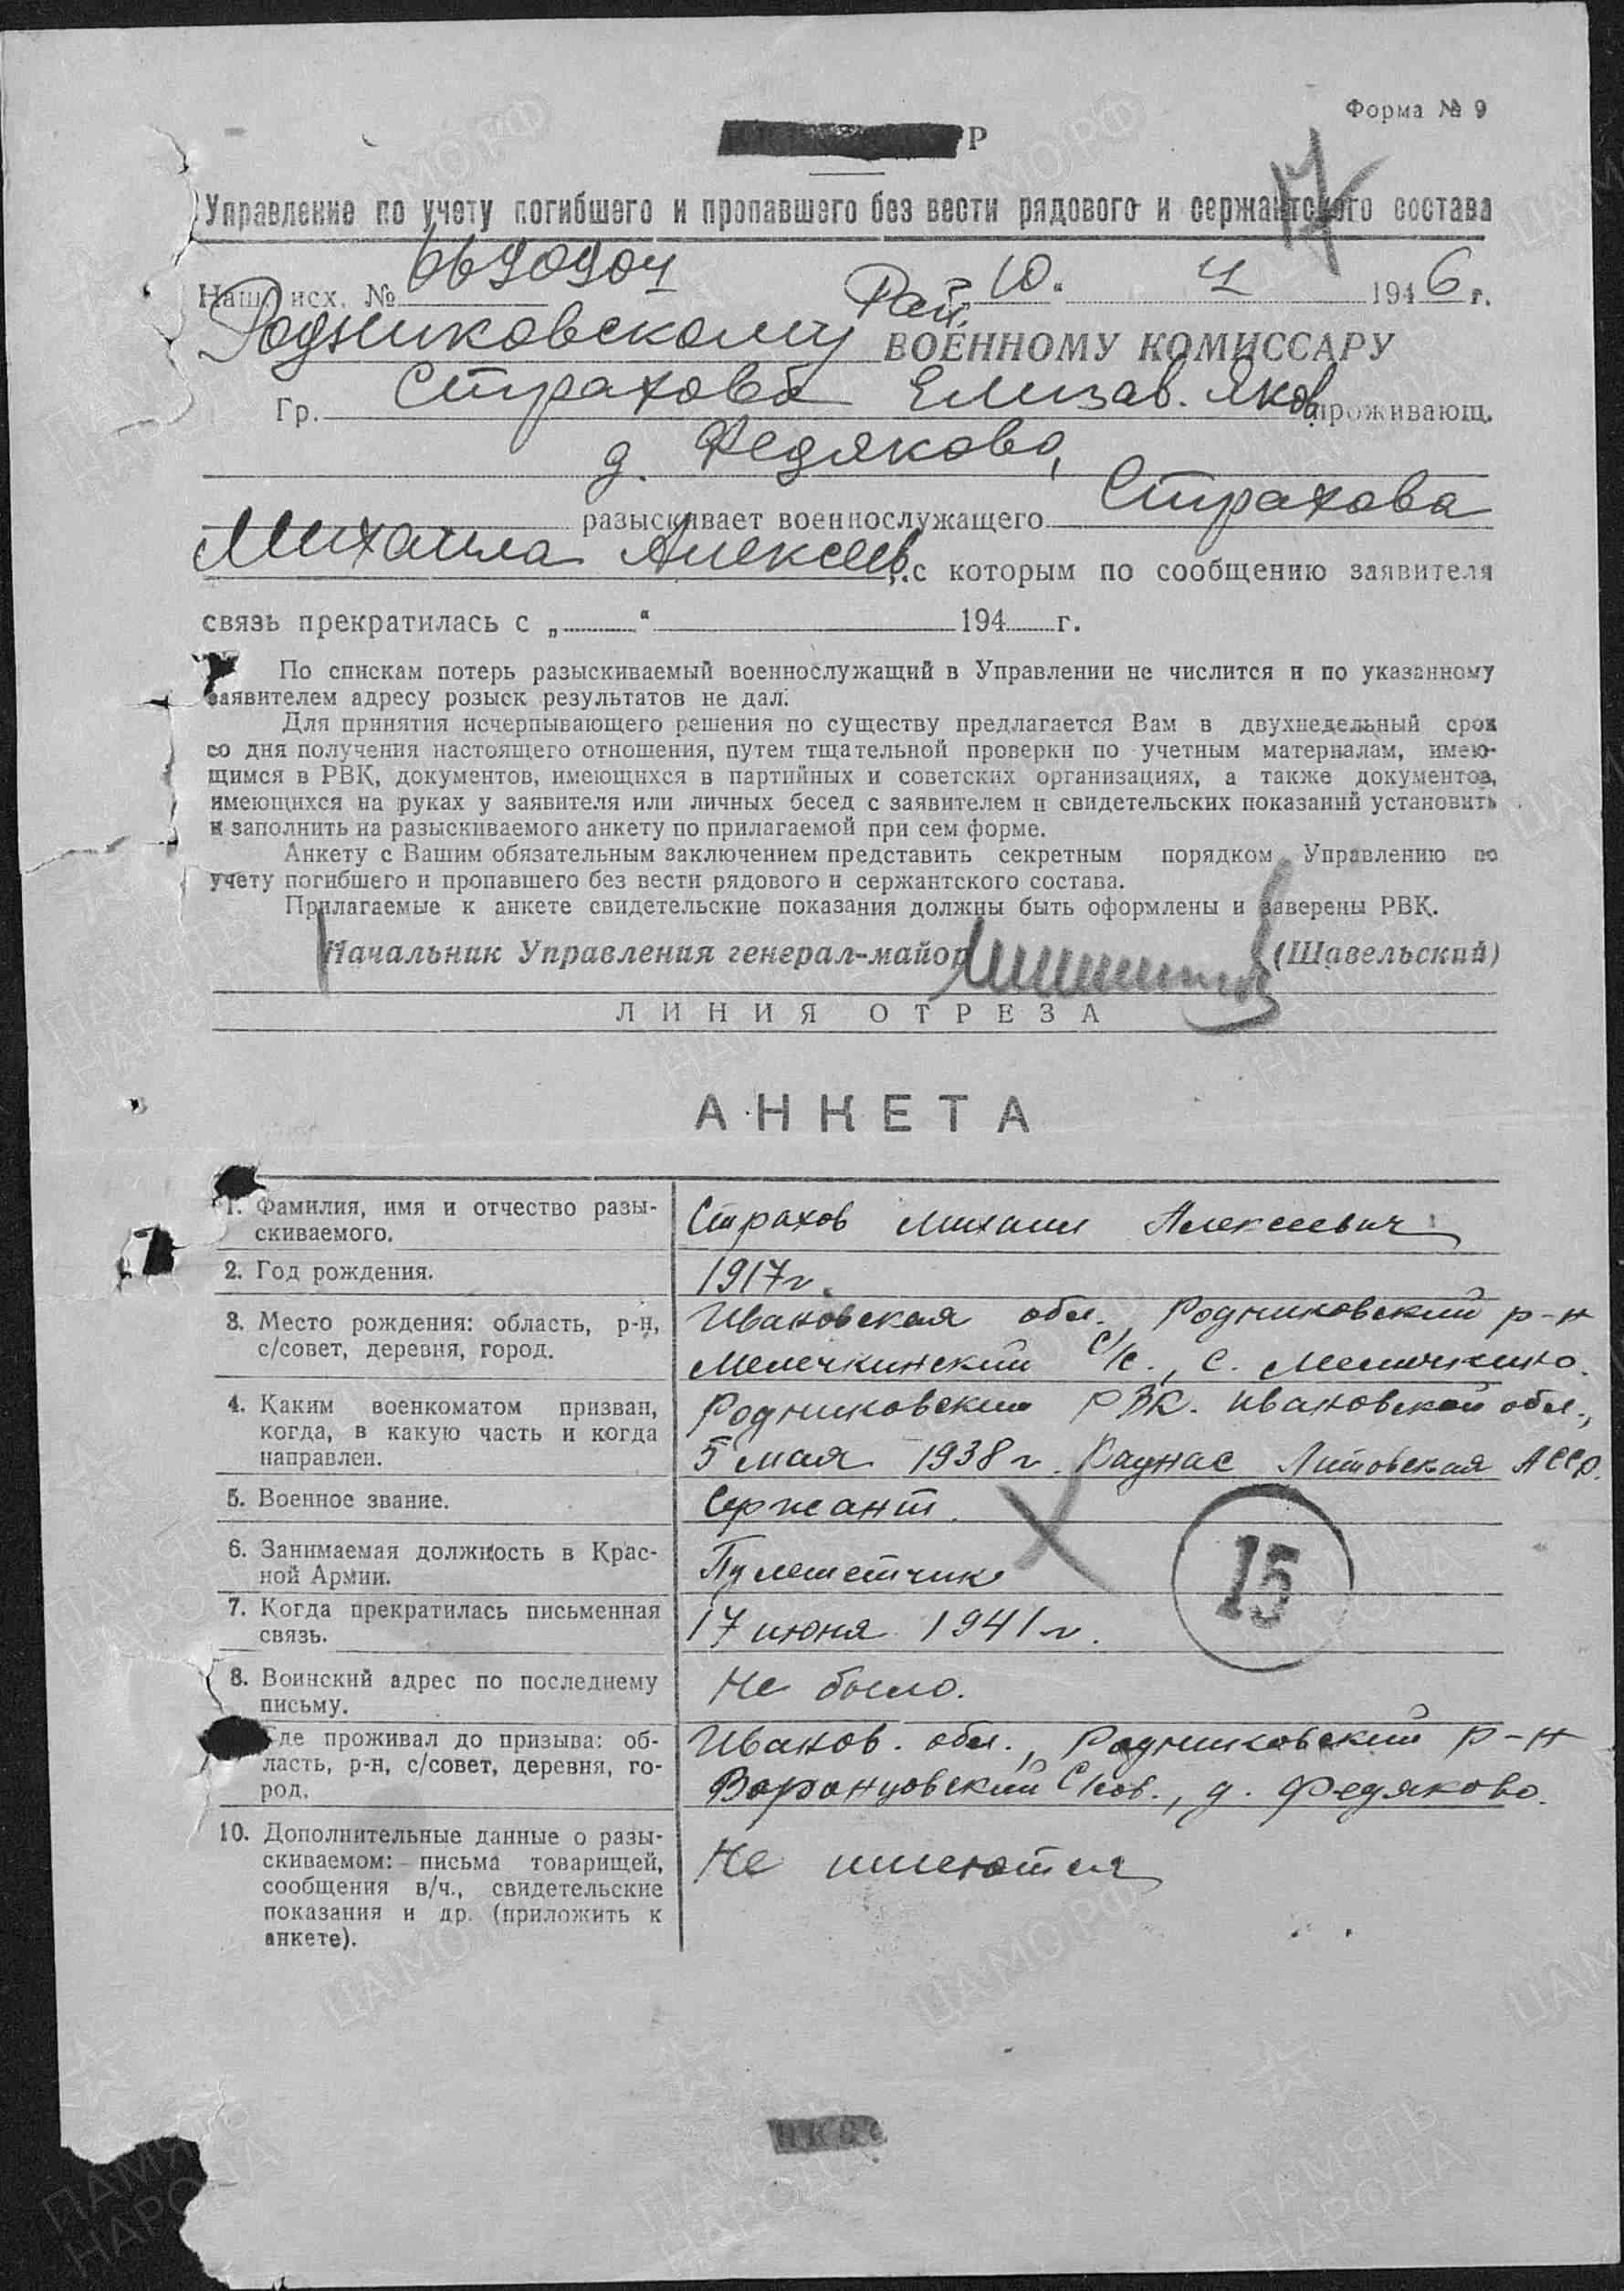 Форма № 9
Р
Управление по учету погибшего и пропавшего без вести рядового и сержантского состава
Наш исх. № 6690904 10. 4 1946 г.
Родниковскому Рай. ВОЕННОМУ КОМИССАРУ
Гр. Страхова Елизав. Яков. проживающ.
д. Федяково,
разыскивает военнослужащего Страхова
Михаила Алексеев. с которым по сообщению заявителя
связь прекратилась с „ “ 194 г.
По спискам потерь разыскиваемый военнослужащий в Управлении не числится и по указанному
заявителем адресу розыск результатов не дал.
Для принятия исчерпывающего решения по существу предлагается Вам в двухнедельный срок
со дня получения настоящего отношения, путем тщательной проверки по учетным материалам, имею-
щимся в РВК, документов, имеющихся в партийных и советских организациях, а также документов,
имеющихся на руках у заявителя или личных бесед с заявителем и свидетельских показаний установить
и заполнить на разыскиваемого анкету по прилагаемой при сем форме.
Анкету с Вашим обязательным заключением представить секретным порядком Управлению по
учету погибшего и пропавшего без вести рядового и сержантского состава.
Прилагаемые к анкете свидетельские показания должны быть оформлены и заверены РВК.
Начальник Управления генерал-майор (Шавельский)
ЛИНИЯ ОТРЕЗА
АНКЕТА
1. Фамилия, имя и отчество разы-
скиваемого.
Страхов Михаил Алексеевич
2. Год рождения.
1917 г.
3. Место рождения: область, р-н,
с/совет, деревня, город.
Ивановская обл., Родниковский р-н
Мелечкинский с/с., с. Мелечкино.
4. Каким военкоматом призван,
когда, в какую часть и когда
направлен.
Родниковский РВК. Ивановской обл.,
5 мая 1938 г. Каунас Литовская АССР.
5. Военное звание.
Сержант.
6. Занимаемая должность в Крас-
ной Армии.
Пулеметчик
15
7. Когда прекратилась письменная
связь.
17 июня 1941 г.
8. Воинский адрес по последнему
письму.
Не было.
Где проживал до призыва: об-
ласть, р-н, с/совет, деревня, го-
род.
Иванов. обл., Родниковский р-н
Воронцовский с/сов., д. Федяково.
10. Дополнительные данные о разы-
скиваемом: письма товарищей,
сообщения в/ч., свидетельские
показания и др. (приложить к
анкете).
Не имеются
ЦАМО.РФ
ПАМЯТЬ
НАРОДА